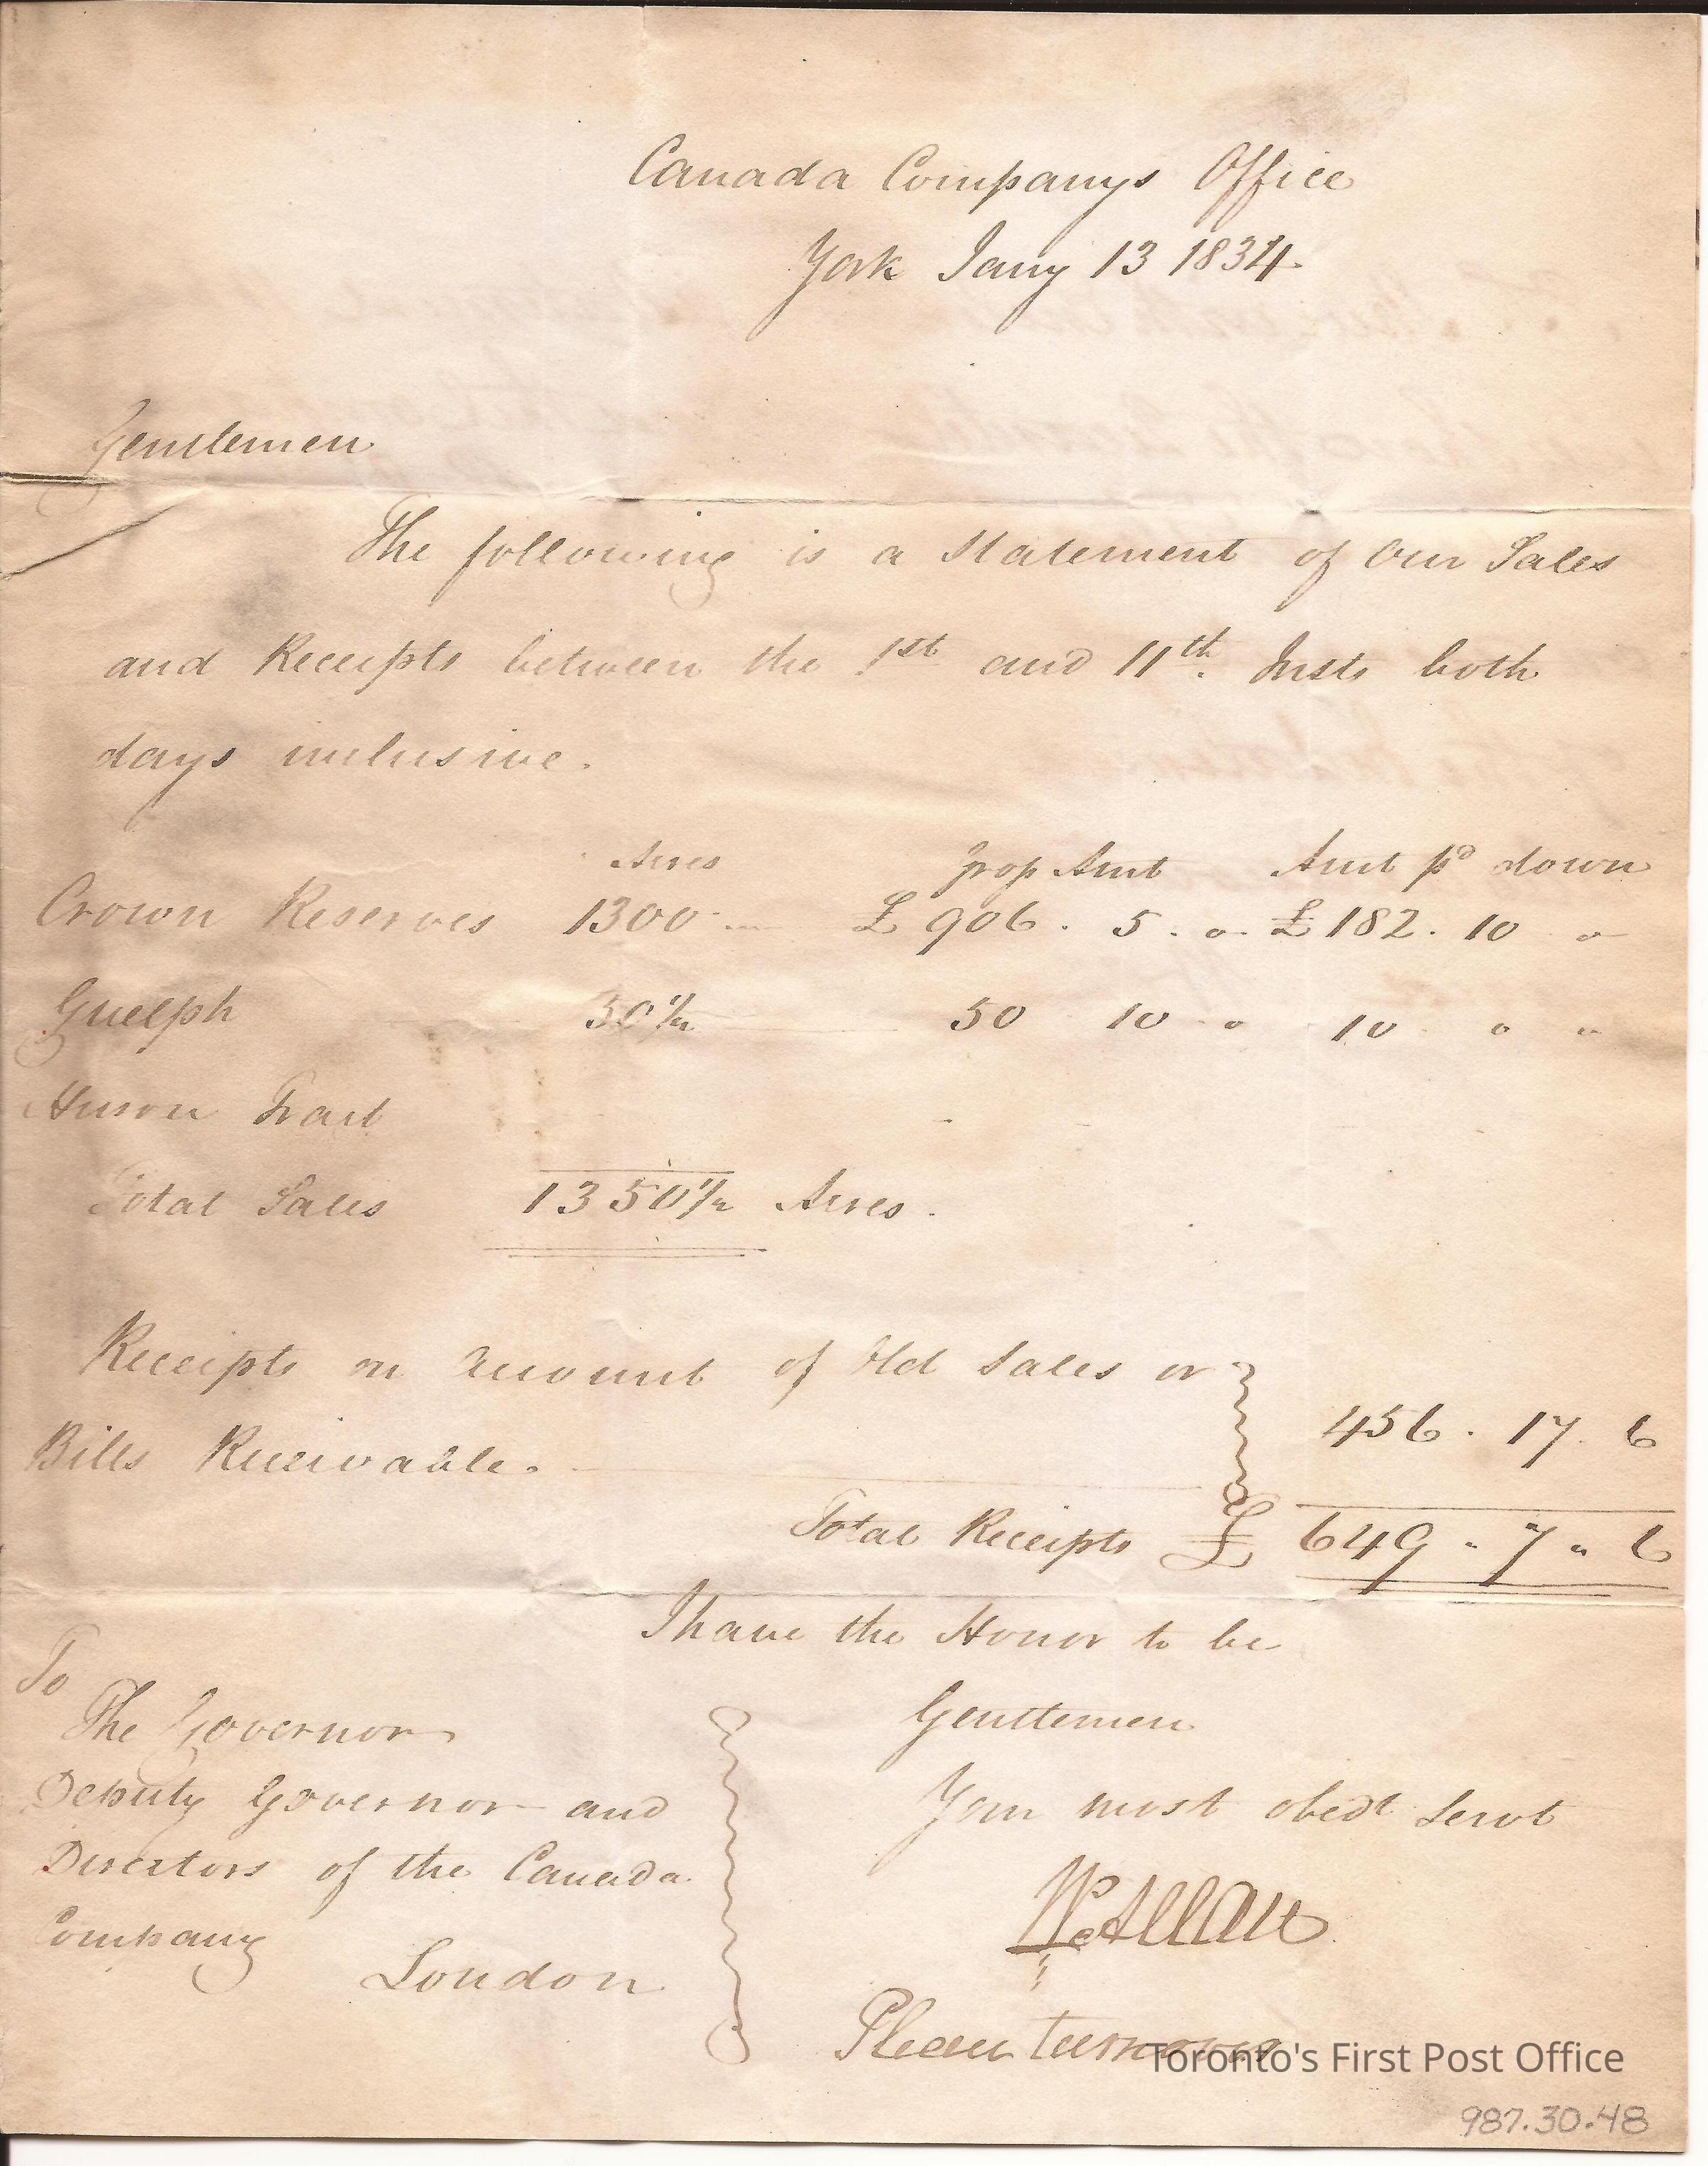 Canada Companys Office
York Jany 13 1834
Gentlemen
The following is a Statement of our Sales
and Receipts between the 1st and 11th. Insts both
days inclusive.
Acres Amt Amt pd down
Crown Reserves 1300 £ 906. 5. 0. £ 182. 10 0
Guelph 50 1/2 50 10 0 10 0 0
Huron Tract
Total Sales 1350 1/2 Acres.
Receipts on account of Old Sales or
Bills Receivable. 456. 17. 6
Total Receipts £ 649 " 7 " 6
I have the Honor to be
Gentlemen
Your most obedt Servt
W. Allan
To
The Governor
Deputy Governor and
Directors of the Canada
Company
London
Please turn over
Toronto's First Post Office
987.30.48